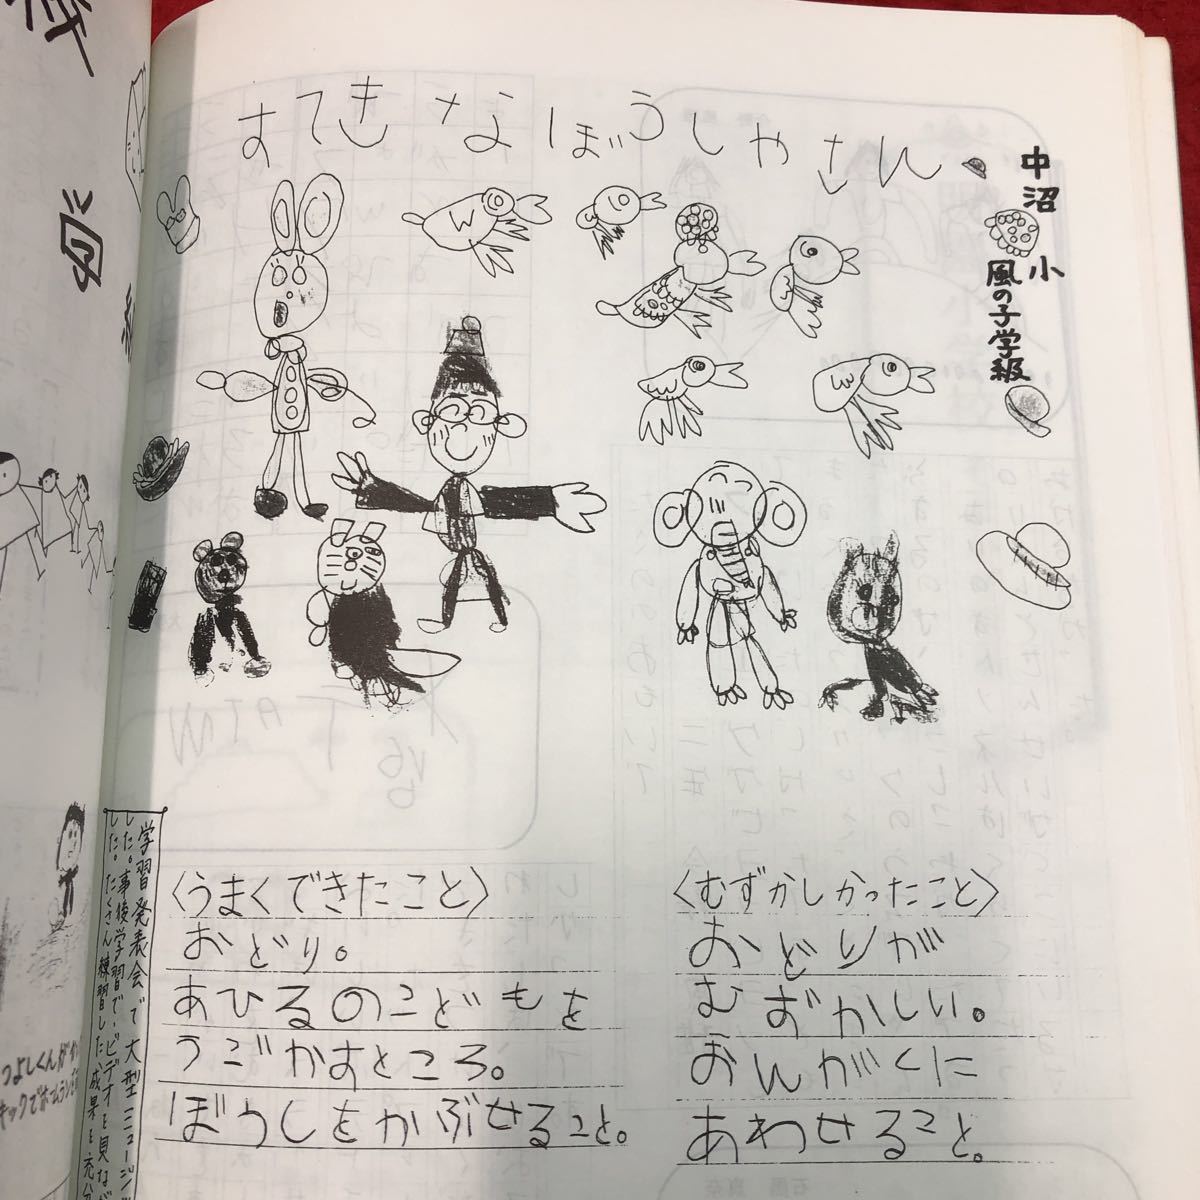 すてきなぼうしやさん
中沼小
風の子学級
〈うまくできたこと〉
おどり。
あひるのこどもを
うごかすところ。
ぼうしをかぶせること。
〈むずかしかったこと〉
おどりが
むずかしい。
おんがくに
あわせること。
学習発表会で大型ミュージ
した。事後学習で、ビデオを見なが
した。たくさん練習した成果を充分
つよしくんが
キックでホームラン